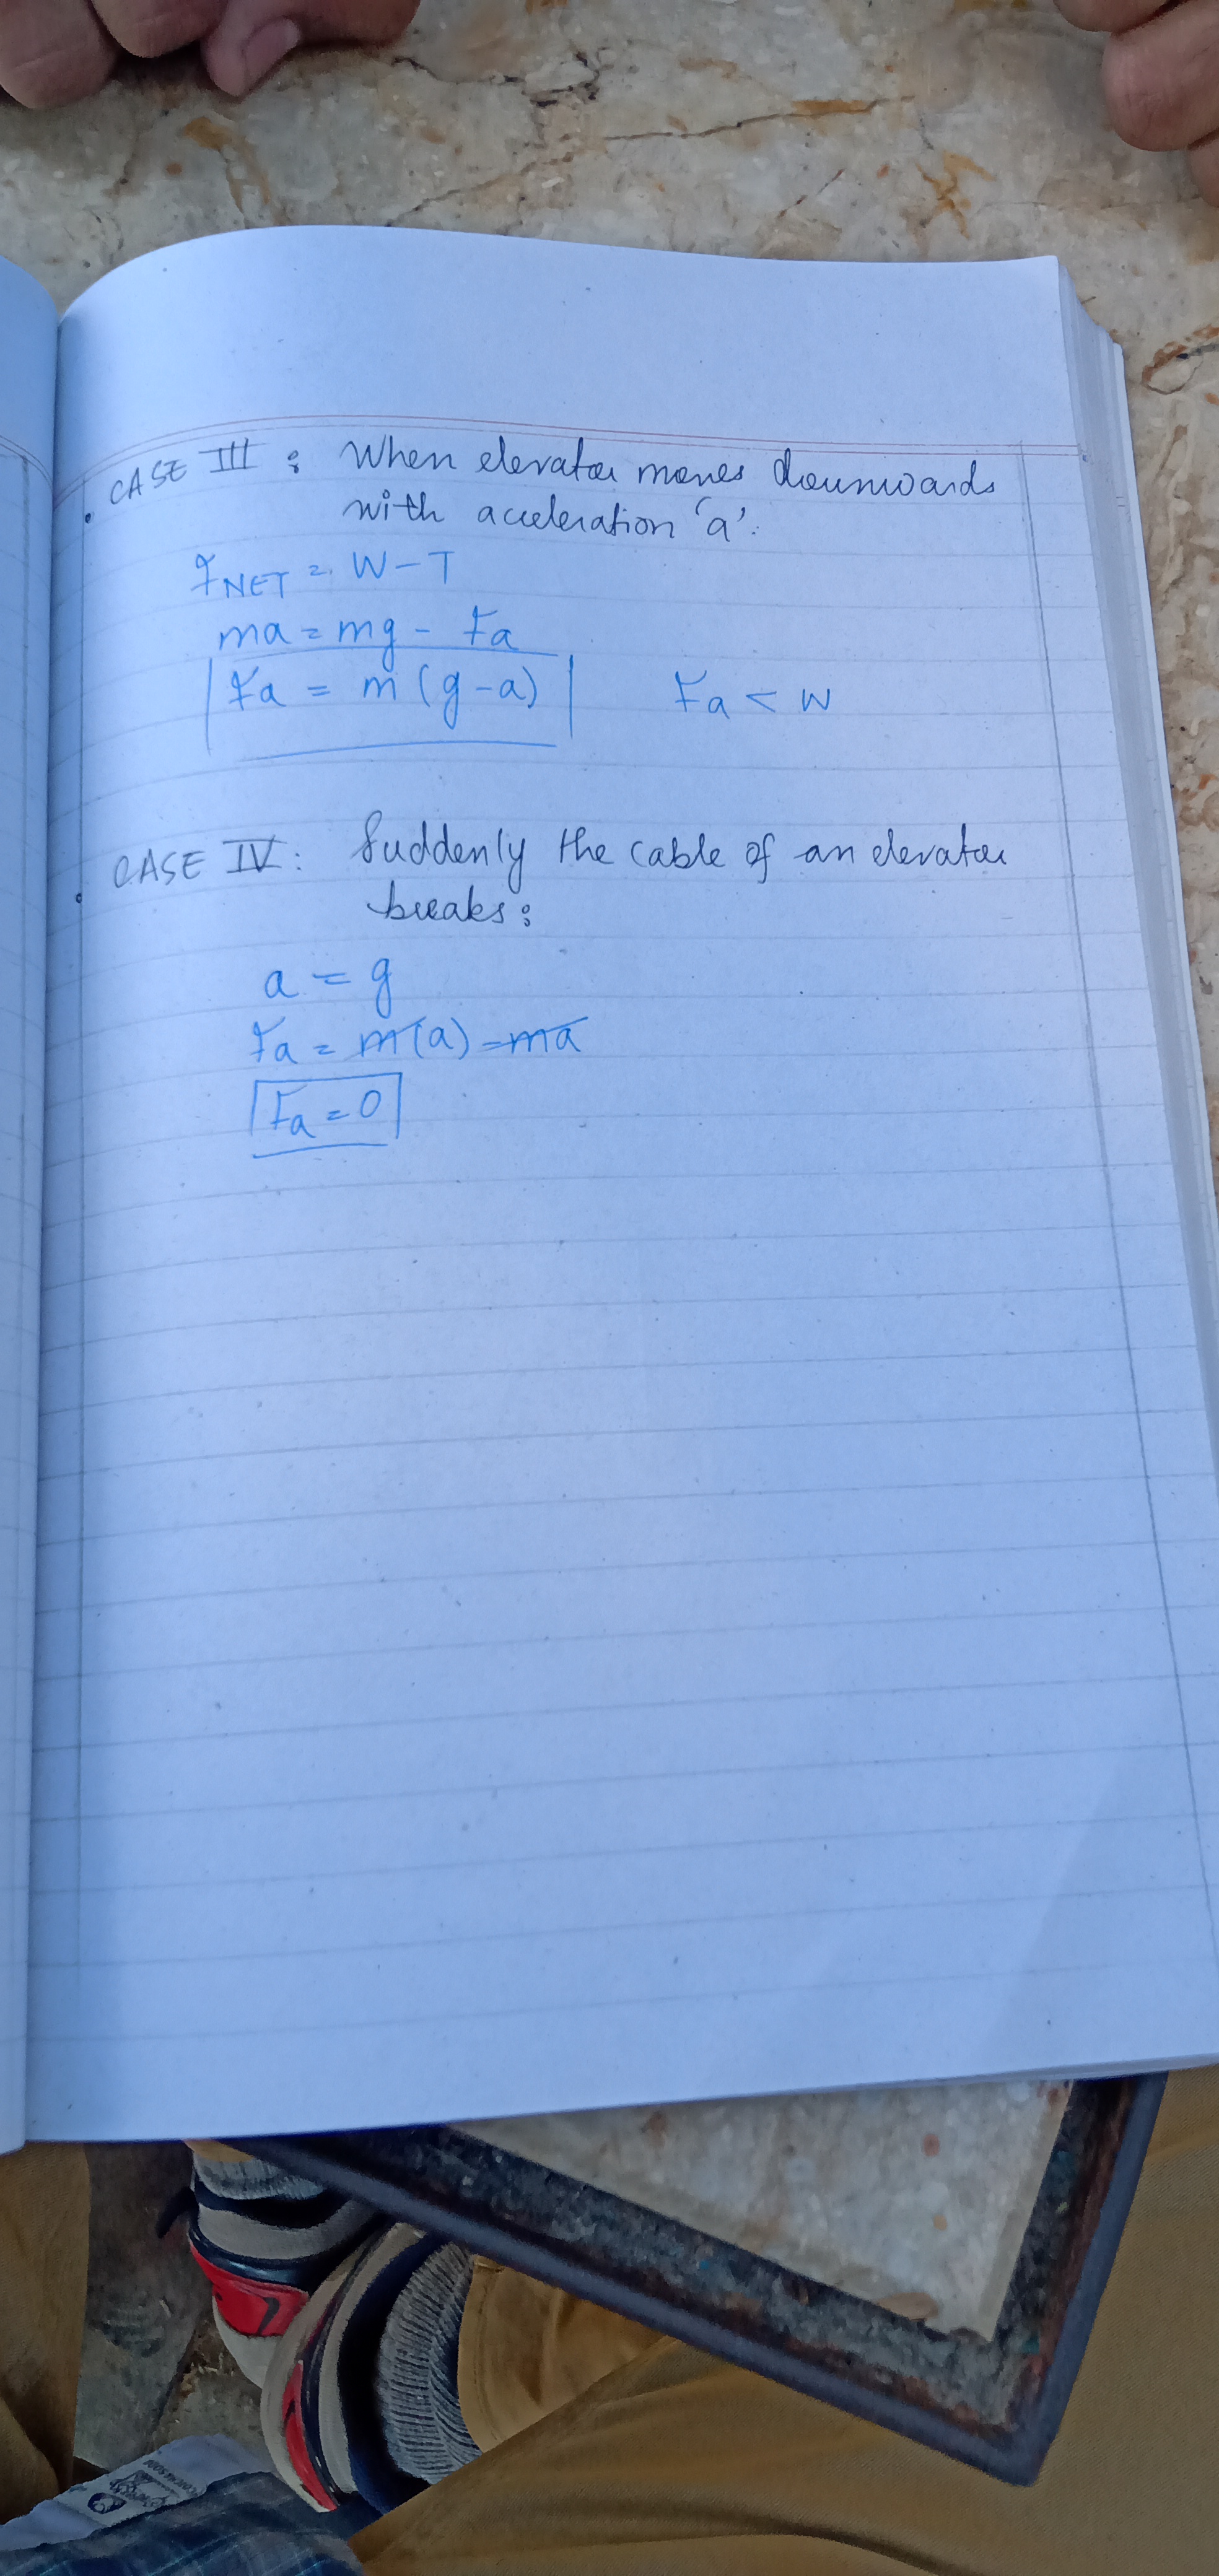 CASE III : When elevator moves downwards
with acceleration 'a'.
F NET = W - T
ma = mg - Fa
Fa = m (g - a) Fa < W
CASE IV : Suddenly the cable of an elevator
breaks :
a = g
Fa = m(a) - ma
Fa = 0